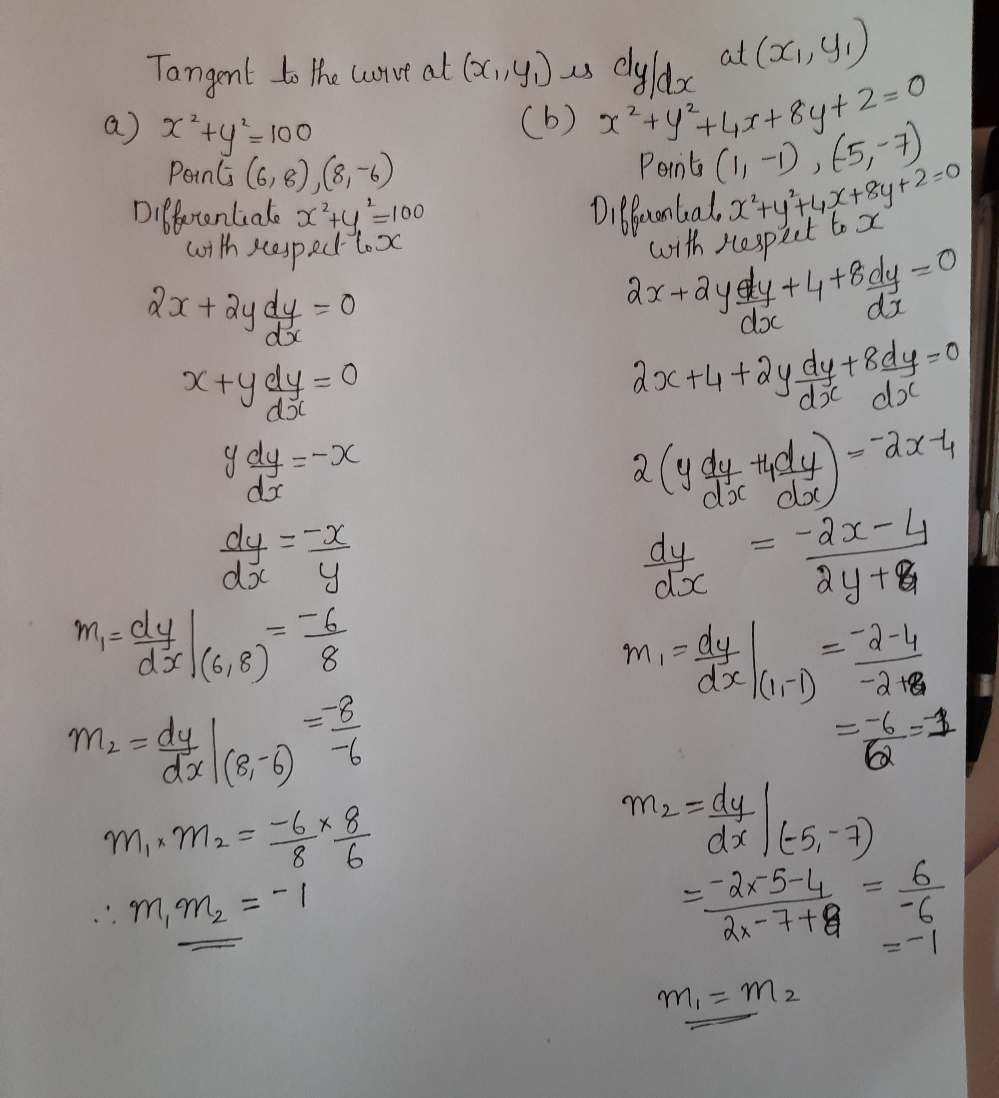 Tangent to the curve at (x₁, y₁) is dy/dx at (x₁, y₁)
a) x²+y²=100
Points (6, 8), (8, -6)
Differentiate x²+y²=100
with respect to x
2x + 2y dy/dx = 0
x + y dy/dx = 0
y dy/dx = -x
dy/dx = -x/y
m₁ = dy/dx |(6,8) = -6/8
m₂ = dy/dx |(8,-6) = -8/-6
m₁ × m₂ = -6/8 × 8/6
∴ m₁m₂ = -1
(b) x²+y²+4x+8y+2=0
Points (1, -1), (-5, -7)
Differentiate x²+y²+4x+8y+2=0
with respect to x
2x+2y dy/dx + 4 + 8 dy/dx = 0
2x+4+2y dy/dx + 8 dy/dx = 0
2(y dy/dx +4 dy/dx) = -2x-4
dy/dx = -2x-4/2y+8
m₁ = dy/dx |(1,-1) = -2-4/-2+8
= -6/6 = -1
m₂ = dy/dx |(-5,-7)
= -2x-5-4/2x-7+8 = 6/-6
= -1
m₁ = m₂